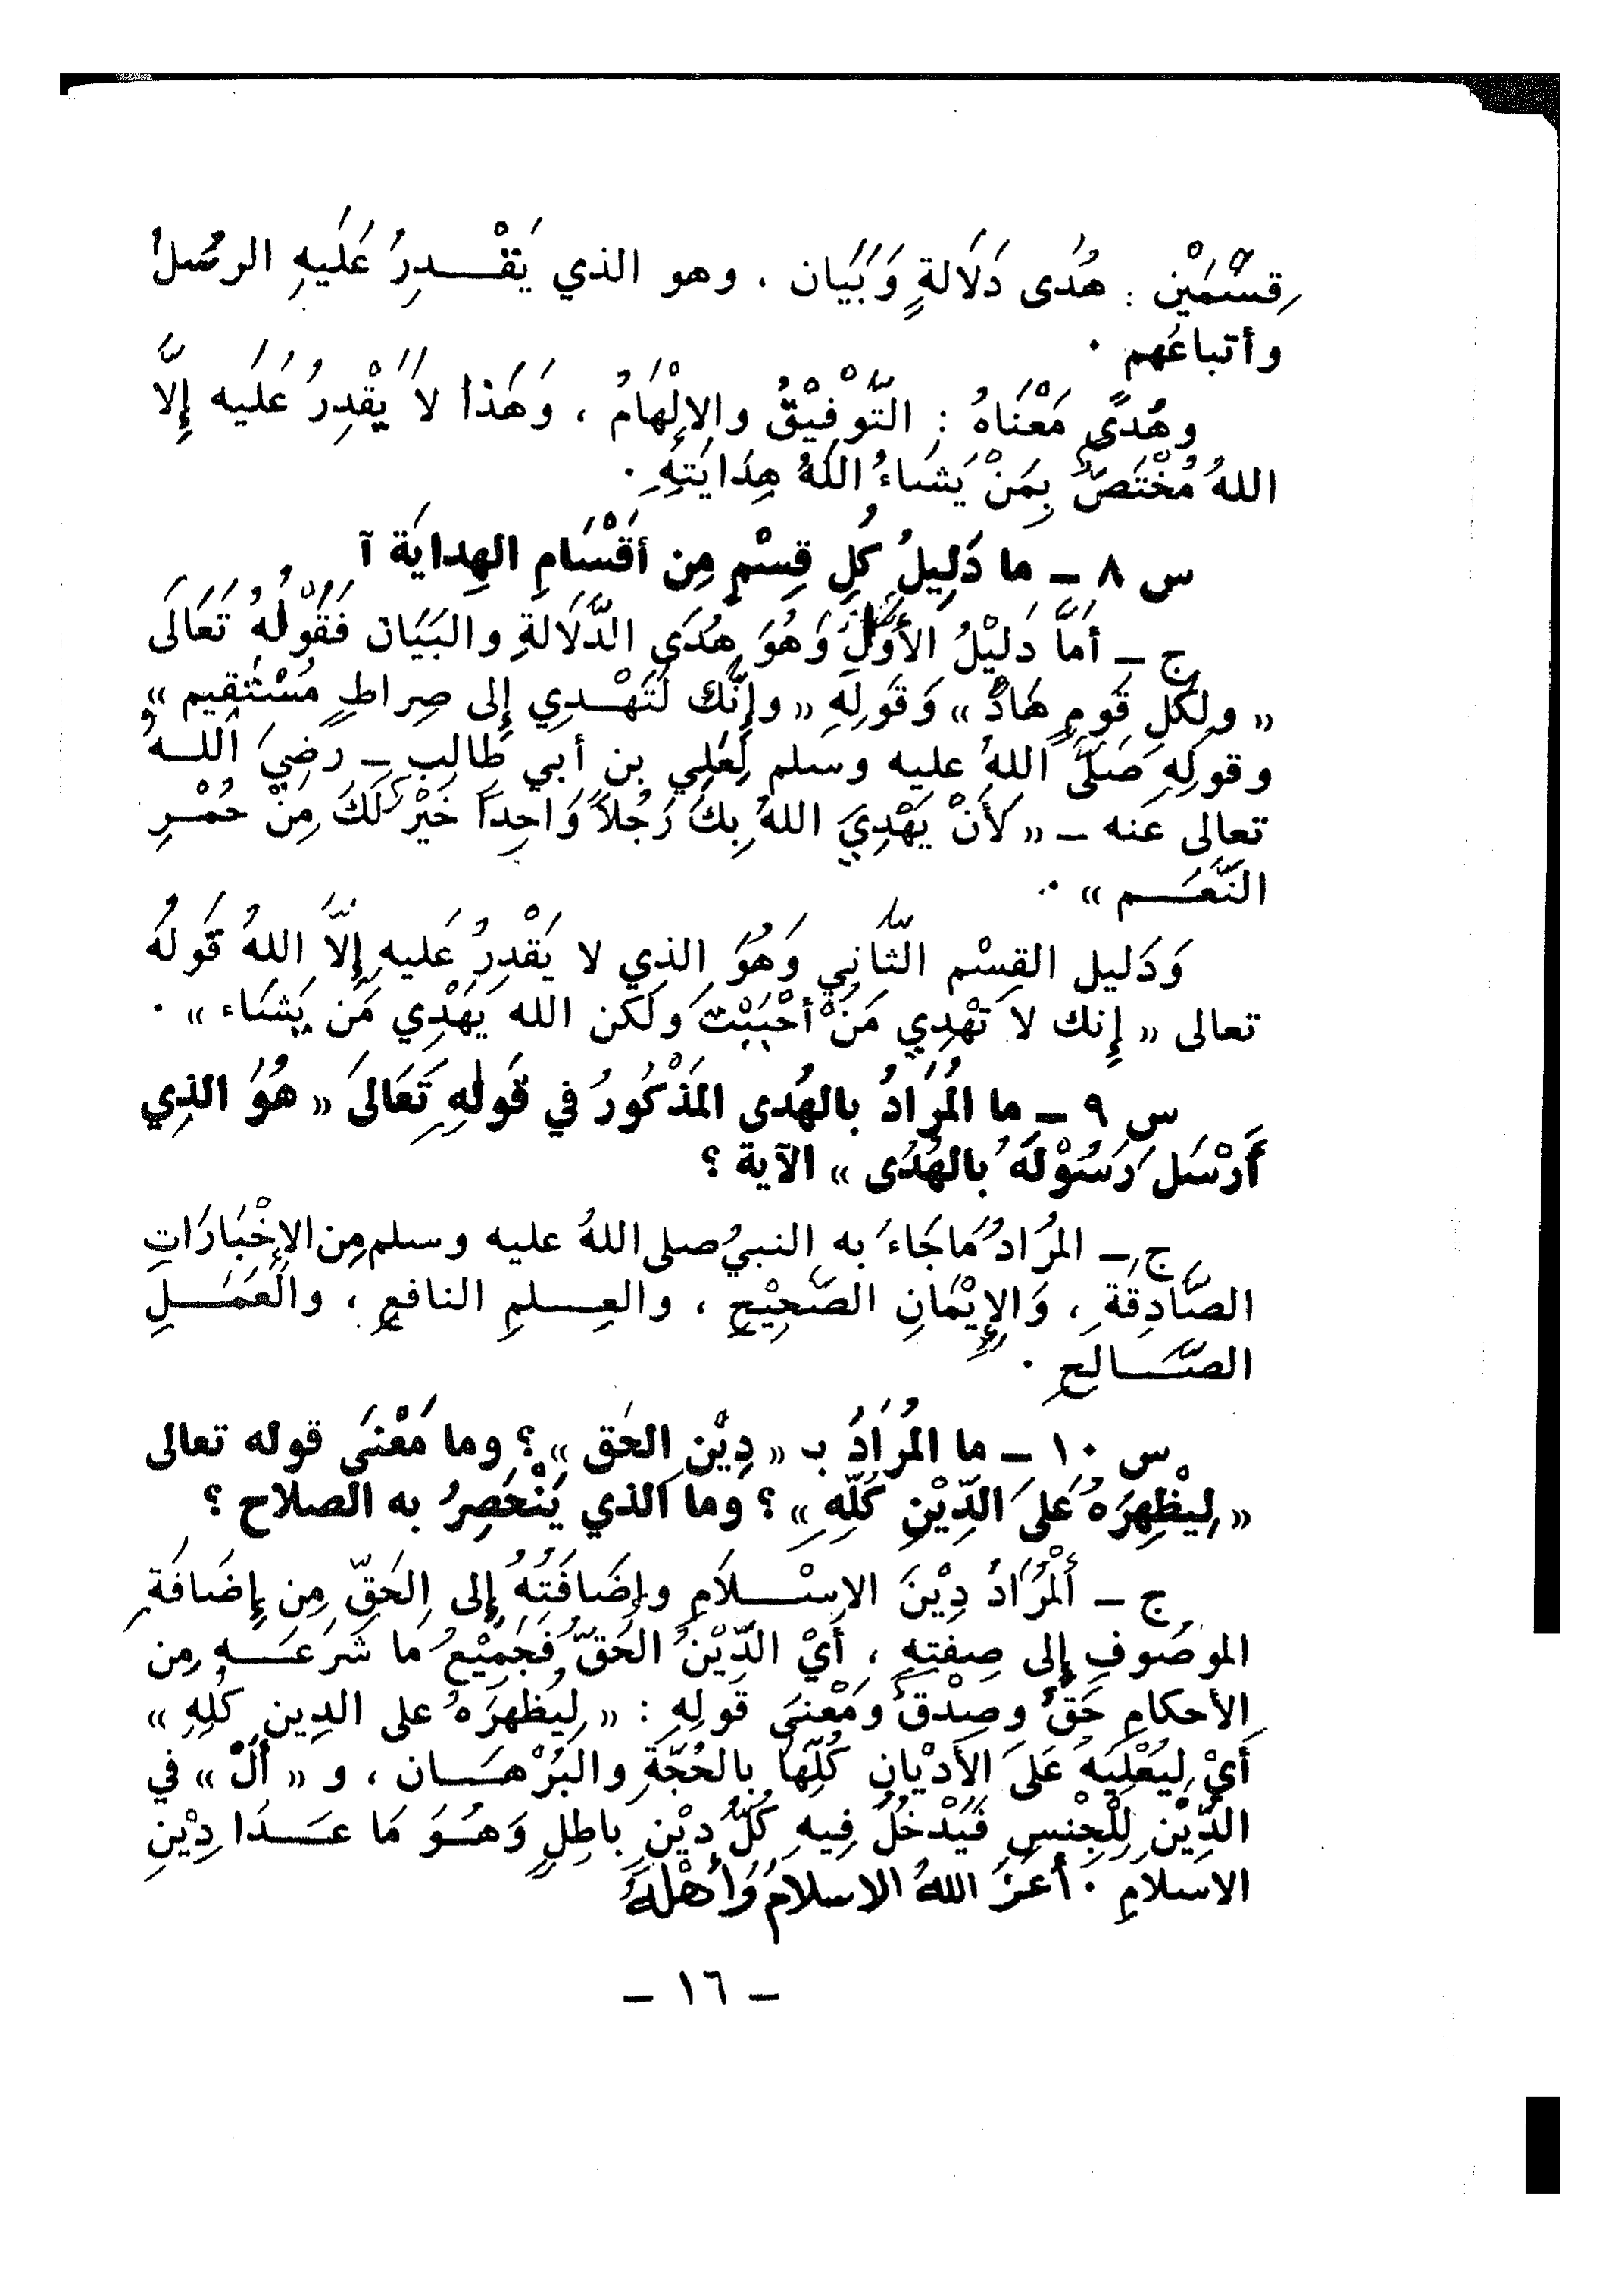 قِسْمَيْنِ : هُدَى دَلَالَةٍ وَبَيَان ، وهو الذي يَقْـدِرُ عَلَيهِ الرسُلُ
وأتباعُهم ٠
وهُدىً مَعْنَاهُ : التَّوْفِيْقُ والإِلْهَامُ ، وَهَذا لاَ يَقْدِرُ عَليه إِلَّا
اللهُ مُخْتَصٌّ بِمَنْ يَشَاءُ اللهُ هِدَايَتَهُ ٠
س ٨ ــ ما دَلِيلُ كُلِ قِسْمٍ مِن أقْسَامِ الهِدايَة آ
ج ــ أمَّا دَلِيْلُ الأَوَّلِ وَهُوَ هُدَى الدَّلَالَةِ والبَيَان فَقَوْلُهُ تَعَالَى
« ولِكُلِ قَومٍ هَادٌ » وَقَولِهِ « وإنَّك لَتَهْـدِي إِلى صِراطٍ مُسْتَقِيم »
وقولِهِ صَلَّى اللهُ عليه وسلم لِعَلِي بن أبي طَالِبٍ ــ رَضِيَ اللـهُ
تعالى عَنه ــ « لأَنْ يَهْدِيَ اللهُ بِكَ رَجُلاً وَاحِداً خَيْرٌ لَكَ مِنْ حُمْـرِ
النَّعَـم » ٠
وَدَليل القِسْم الثَّانِي وَهُوَ الذِي لا يَقْدِرُ عَليهِ إِلَّا اللهُ قَولُهُ
تعالى « إِنك لاَ تَهْدِي مَنْ أحْبَبْتَ وَلَكن الله يَهْدِي مَن يَشَاء » ٠
س ٩ ــ ما المُرَادُ بالهُدى المَذْكُورُ في قَولِهِ تَعَالىَ « هُوَ الذِي
أَرْسَلَ رَسُوْلَهُ بالهُدَى » الآية ؟
ج ــ المُرَادُ مَا جَاءَ به النبيُ صلى اللهُ عليه وسلم مِن الإِخْبَارَاتِ
الصَّادِقَةِ ، وَالإِيْمَانِ الصَّحِيْحِ ، والعِـلمِ النافِعِ ، والعَمَـلِ
الصَّـالِحِ ٠
س ١٠ ــ ما المُرَادُ بـ « دِيْنِ الحَق » ؟ وما مَعْنَى قوله تعالى
« لِيظْهِرَهُ عَلىَ الدِّيْنِ كُلِّهِ » ؟ وما الذي يَنْحَصِرُ به الصلاح ؟
ج ــ اَلْمُرَادُ دِيْنَ الاِسْـلاَمِ وإضَافَتُهُ إِلى الحَقِّ مِن إِضَافَةِ
الموصُوفِ إِلى صِفَتِهِ ، أَيْ الدِّيْنُ الحَقُّ فَجَمِيْعُ ما شَرَعَـهِ مِن
الأحكامِ حَقٌّ وصِدْقٌ وَمَعْنىَ قَولِهِ : « لِيُظهِرَهُ على الدِينِ كُلِهِ »
أَيْ لِيُعْلِيَهُ عَلىَ الأَدْيَانِ كُلِّهَا بِالحُجَّةِ والبُرْهَـان ، و « أَلْ » في
الدِّيْنِ لِلْجِنْسِ فَيَدْخُلُ فِيهِ كُلُّ دِيْنٍ بَاطِلٍ وَهُـوَ مَا عَـدَا دِيْنِ
الاسلامِ ٠ أعَزَ اللهُ الاسلامَ وَأهْلَهُ
ــ ١٦ ــ